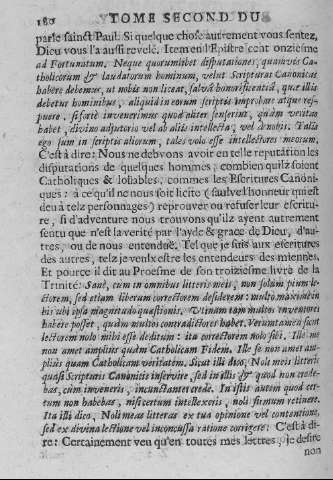 180 TOME SECOND DU
parle sainct Paul. Si quelque chose autrement vous sentez,
Dieu vous l'a aussi revelé. Item en l'Epistre cent onziesme
ad Fortunatum. Neque quorumlibet disputationes, quamvis Ca-
tholicorum & laudatorum hominum, velut Scripturas Canonicas
habere debemus, ut nobis non liceat, salvâ honorificentiâ, quæ illis
debetur hominibus, aliquid in eorum scriptis improbare atque res-
puere, si fortè invenerimus quòd aliter senserint, quàm veritas
habet, divino adjutorio vel ab aliis intellecta, vel à nobis. Talis
ego sum in scriptis aliorum, tales volo esse intellectores meorum.
C'est à dire: Nous ne debvons avoir en telle reputation les
disputations de quelques hommes, combien qu'ilz soient
Catholiques & loüables, comme les Escritures Canoni-
ques: à ce qu'il ne nous soit licite (saulve l'honneur qui est
deu à telz personnages) reprouver ou refuser leur escritu-
re, si d'adventure nous trouvons qu'ilz ayent autrement
sentu que n'est la verité par l'ayde & grace de Dieu, d'au-
tres, ou de nous entenduë. Tel que je suis aux escritures
des autres, telz je veulx estre les entendeurs des miennes.
Et pource il dit au Proesme de son troiziesme livre de la
Trinité: Sanè, cum in omnibus litteris meis, non solùm pium le-
ctorem, sed etiam liberum correctorem desiderem: multo maximè in
his ubi ipsa magnitudo quæstionis. Utinam tam multos inventores
habere posset, quàm multos contradictores habet. Verumtamen sicut
lectorem nolo mihi esse deditum: ita correctorem nolo sibi. Ille me
non amet ampliùs quàm Catholicam Fidem. Ille se non amet am-
pliùs quàm Catholicam veritatem. Sicut illi dico, Noli meis litteris
quasi Scripturis Canonicis inservire, sed in illis & quod non crede-
bas, cùm inveneris, incunctanter crede. In istis autem quod cer-
tum non habebas, nisi certum intellexeris, noli firmum retinere.
Ita illi dico, Noli meas litteras ex tua opinione vel contentione,
sed ex divina lectione vel inconcussa ratione corrigere: C'est à di-
re: Certainement veu qu'en toutes mes lettres, je desire
non